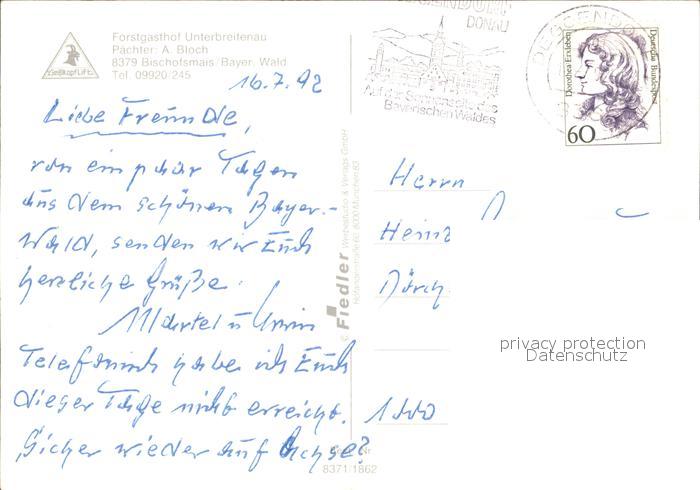 Forstgasthof Unterbreitenau
Pächter: A. Bloch
8379 Bischofsmais/Bayer. Wald
Tel. 09920/245
Geißkopf Lift
16.7.92
Liebe Freunde,
von ein paar Tagen
aus dem schönen Bayer.-
Wald, senden wir Euch
herzliche Grüße.
Telefonisch habe ich Euch
dieser Tage nicht erreicht.
Sicher wieder auf Achse?
© Fiedler Werbestudio & Verlags GmbH
8000 München 83
8371/1862
DONAU
Auf der Sonnenseite des
Bayerischen Waldes
DEGGENDO
Dorothea Erxleben
Deutsche Bundespost
60
Herrn
Heinz
1000
privacy protection
Datenschutz